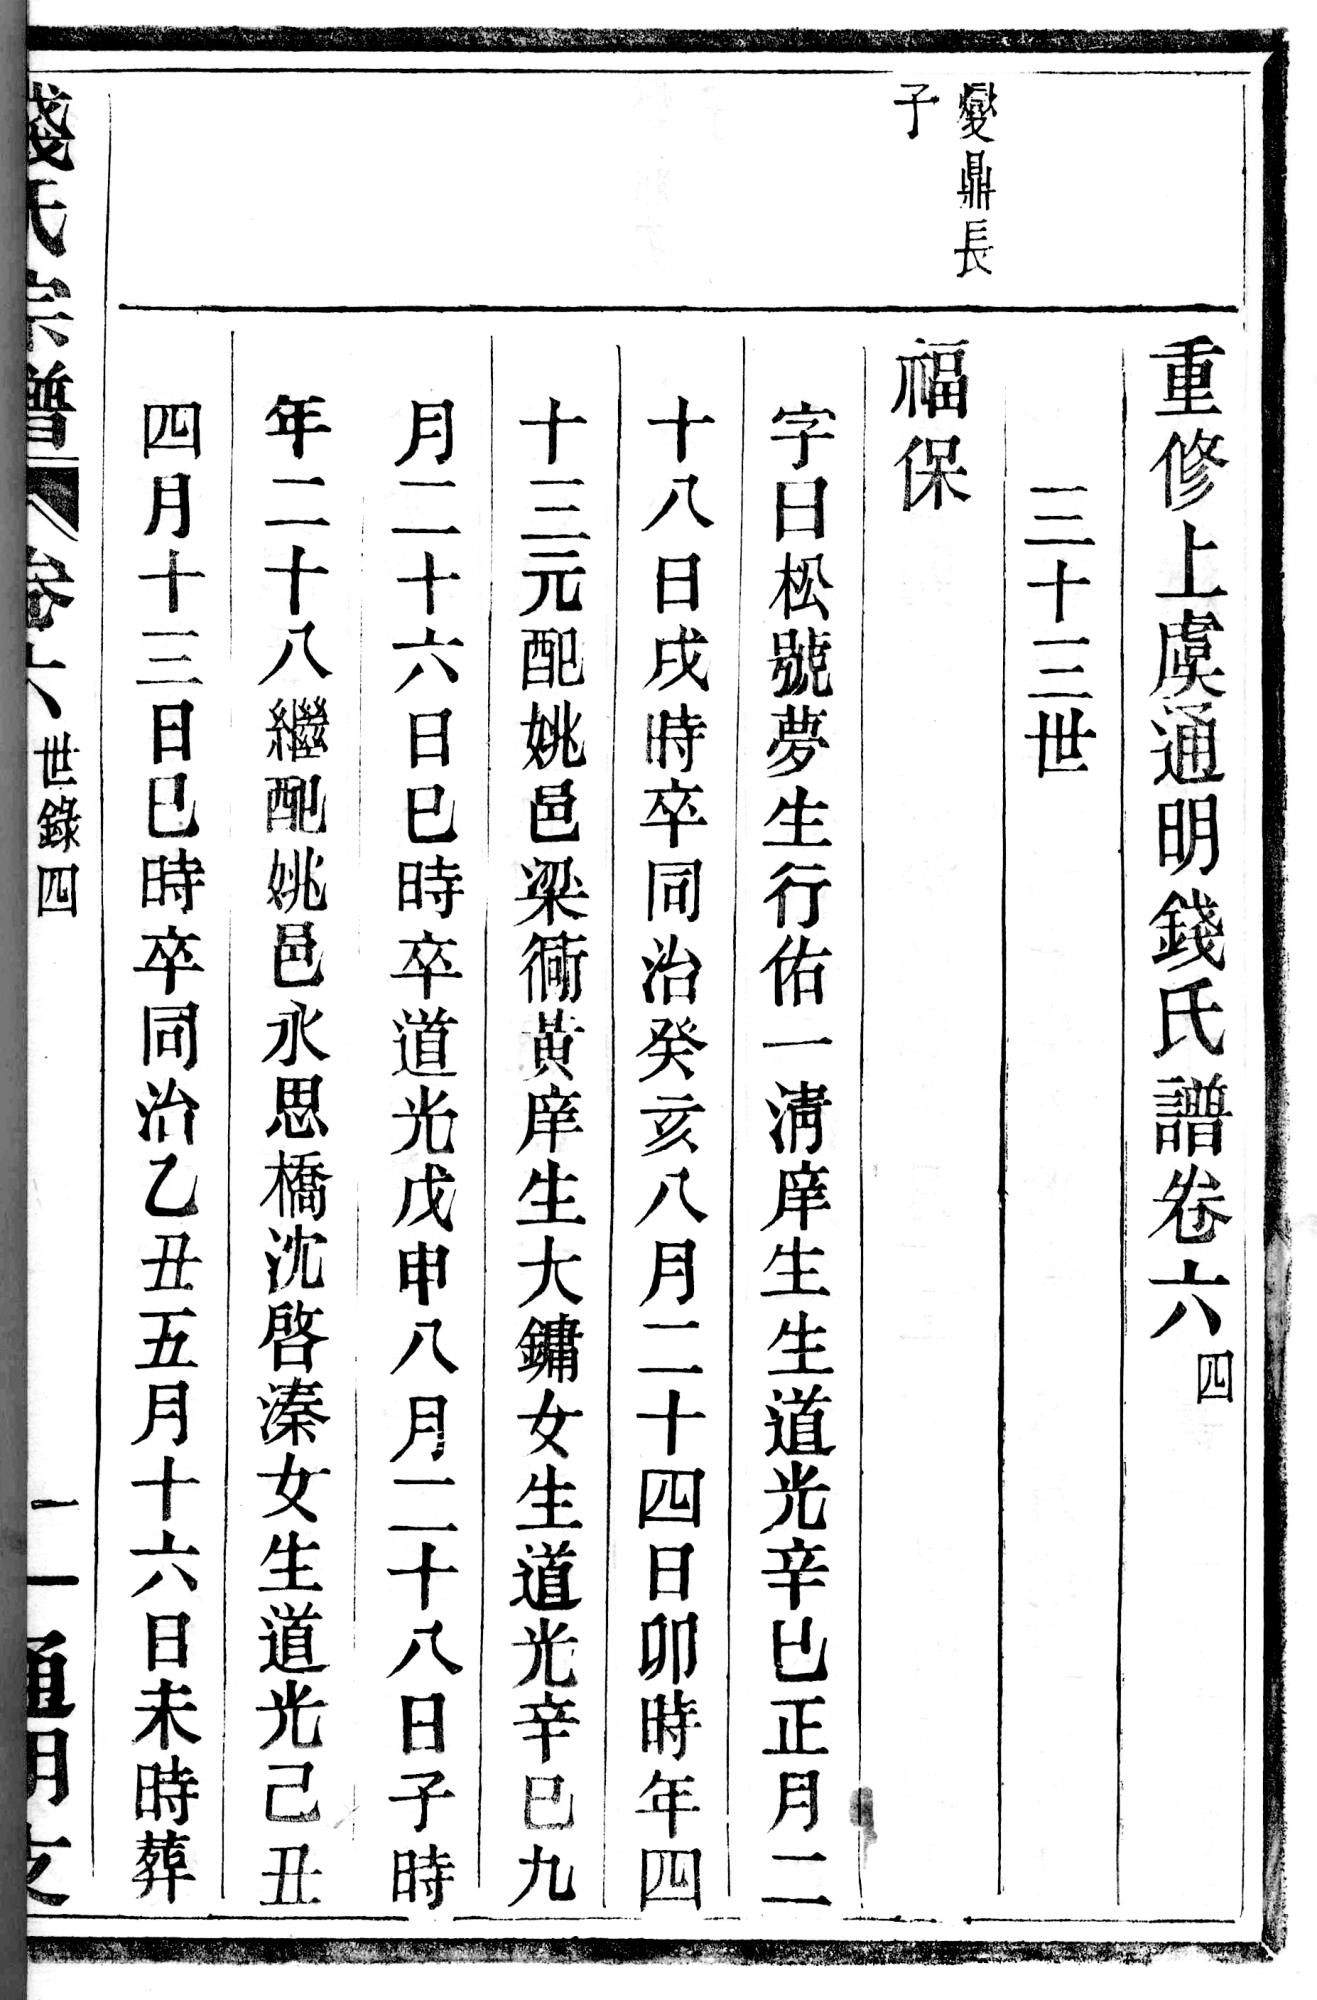 重修上虞通明錢氏譜卷六 四
三十三世
燮鼎長
子
福保
字曰松號夢生行佑一清庠生生道光辛巳正月二
十八日戌時卒同治癸亥八月二十四日卯時年四
十三元配姚邑梁衕黃庠生大鏞女生道光辛巳九
月二十六日巳時卒道光戊申八月二十八日子時
年二十八繼配姚邑永思橋沈啓溱女生道光己丑
四月十三日巳時卒同治乙丑五月十六日未時葬
錢氏宗譜 卷六 世錄四 一 通明支